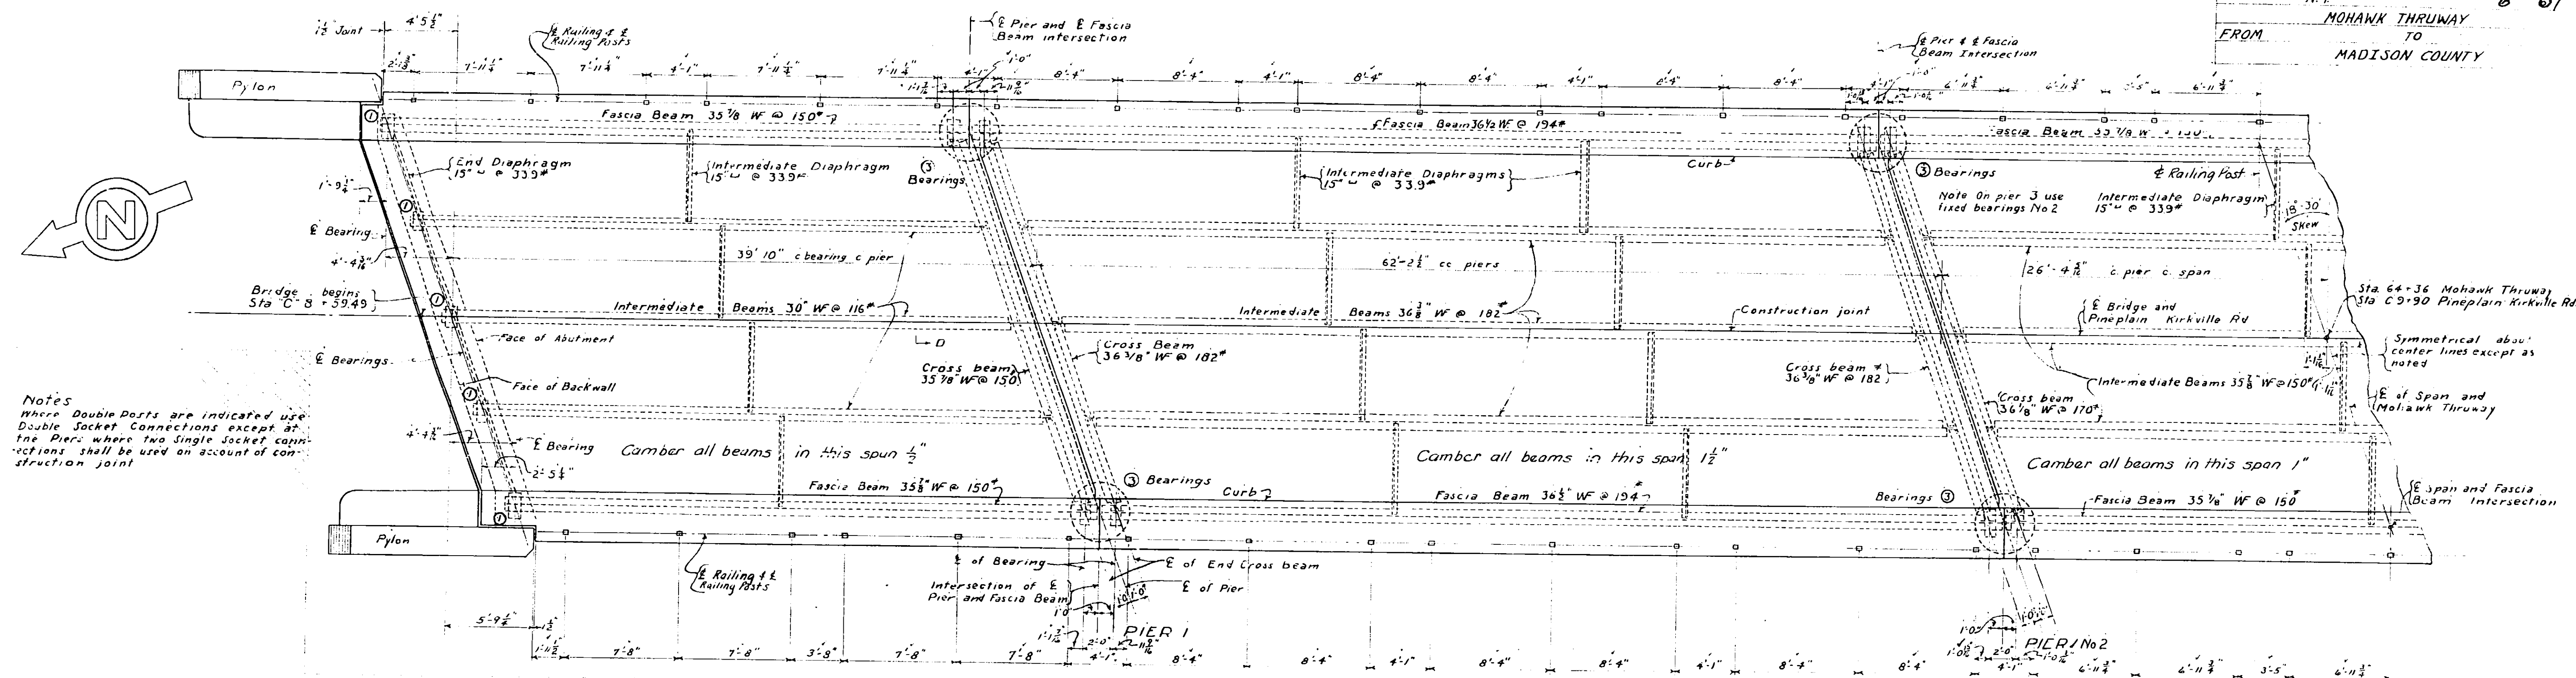 MOHAWK THRUWAY
FROM TO
MADISON COUNTY
1½" Joint
4'5½"
℄ Railing & ℄
Railing Posts
℄ Pier and ℄ Fascia
Beam intersection
℄ Pier & ℄ Fascia
Beam Intersection
7'-11¼" 7'-11¼" 4'-1" 7'-11¼" 7'-11¼" 4'-1" 1'-0" 8'-4" 8'-4" 4'-1" 8'-4" 8'-4" 4'-1" 8'-4" 8'-4" 4'-1" 1'-0" 6'-11¾" 6'-11¾" 3'-5" 6'-11¾"
Pylon
Fascia Beam 35 7/8 WF @ 150#
Fascia Beam 36½ WF @ 194#
Fascia Beam 35 7/8 W
① End Diaphragm
15" ⊔ @ 33.9#
Intermediate Diaphragm
15" ⊔ @ 33.9#
③
Bearings
Intermediate Diaphragms
15" ⊔ @ 33.9#
Curb
③ Bearings
℄ Railing Post
Note On pier 3 use
fixed bearings No 2
Intermediate Diaphragm
15" ⊔ @ 33.9#
18°-30'
Skew
N
1'-9¼"
①
℄ Bearing
4'-4 3/16"
39' 10" c bearing c pier
62'-2½" cc piers
26'-4 5/16" c. pier c. span
Bridge begins
Sta "C" 8 + 59.49
①
Intermediate Beams 30" WF @ 116#
Intermediate Beams 36⅜" WF @ 182#
Construction joint
℄ Bridge and
Pineplain Kirkville Rd
Sta. 64+36 Mohawk Thruway
Sta C 9+90 Pineplain Kirkville Rd
Face of Abutment
D
℄ Bearings
Cross Beam
36 3/8" WF @ 182#
Cross beam
35 7/8" WF @ 150
Cross beam #
36 3/8" WF @ 182
Symmetrical about
center lines except as
noted
Face of Backwall
①
Intermediate Beams 35⅞" WF @ 150#
Cross beam
36 1/8" WF @ 170#
℄ of Span and
Mohawk Thruway
Notes
Where Double Posts are indicated use
Double Socket Connections except at
the Piers where two Single Socket conn-
ections shall be used on account of con-
struction joint
4'-4½"
℄ Bearing
2'-5¼"
Camber all beams in this span ½"
Camber all beams in this span 1½"
Camber all beams in this span 1"
Fascia Beam 35⅞" WF @ 150#
③ Bearings
Curb
Fascia Beam 36½" WF @ 194
Bearings ③
Fascia Beam 35 7/8" WF @ 150#
℄ Span and Fascia
Beam Intersection
①
Pylon
℄ Railing & ℄
Railing Posts
℄ of Bearing
℄ of End Cross beam
Intersection of ℄
Pier and Fascia Beam
℄ of Pier
1'-0"
5'-9¼" ½"
PIER 1
PIER No 2
1'-11½" 7'-8" 7'-8" 3'-8" 7'-8" 7'-8" 2'-0" 4'-1" 8'-4" 8'-4" 4'-1" 8'-4" 8'-4" 4'-1" 8'-4" 8'-4" 2'-0" 4'-1" 6'-11¾" 6'-11¾" 3'-5" 6'-11¾"